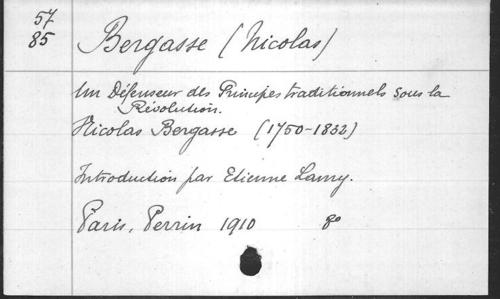 57
85
Bergasse (Nicolas)
Un Défenseur des Principes traditionnels sous la
Révolution.
Nicolas Bergasse (1750-1832)
Introduction par Etienne Lamy.
Paris, Perrin 1910 8º